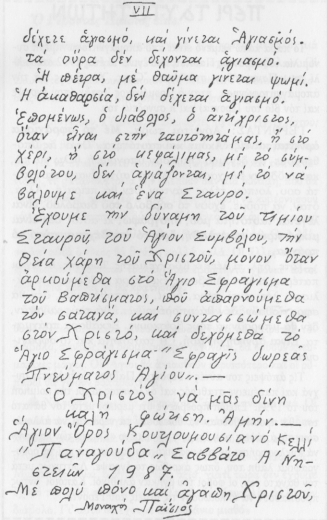 VII
δέχεται ἁγιασμό, καί γίνεται Ἁγιασμός.
τά οὖρα δέν δέχονται ἁγιασμό.
Ἡ πέτρα, μέ θαῦμα γίνεται ψωμί.
Ἡ ἀκαθαρσία, δέν δέχεται ἁγιασμό.
Ἑπομένως, ὁ διάβολος, ὁ ἀντίχριστος,
ὅταν εἶναι στήν ταυτότητάμας, ἤ στό
χέρι, ἤ στό κεφάλιμας, μέ τό σύμ-
βολότου, δέν ἁγιάζονται, μέ τό νά
βάλουμε καί ἕνα Σταυρό.
Ἔχουμε τήν δύναμη τοῦ τιμίου
Σταυροῦ τοῦ Ἁγίου Συμβόλου, τήν
θεία χάρη τοῦ Χριστοῦ, μόνον ὅταν
ἀρκούμεθα στό Ἅγιο Σφράγισμα
τοῦ Βαπτίσματος, πού ἀπαρνούμεθα
τόν σατανᾶ, καί συντασσώμεθα
στόν Χριστό, καί δεχόμεθα τό
Ἅγιο Σφράγισμα "Σφραγίς δωρεᾶς
Πνεύματος Ἁγίου".—
Ὁ Χριστός νά μᾶς δίνη
καλή φώτιση. Ἀμήν.—
Ἅγιον Ὄρος Κουτλουμουσιανό Κελλί
"Παναγούδα" Σαββάτο Α' Νη-
στειῶν 1987
Μέ πολύ πόνο καί ἀγάπη Χριστοῦ,
Μοναχός Παΐσιος